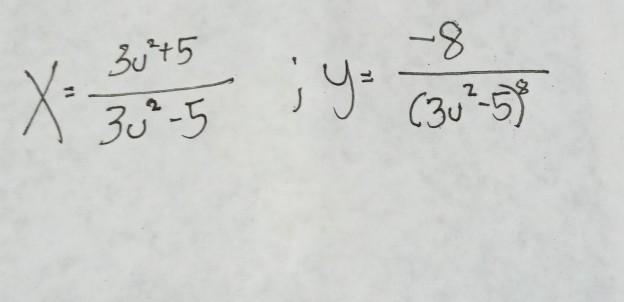 X = (3u²+5)/(3u²-5) ; y = -8/(3u²-5)⁸